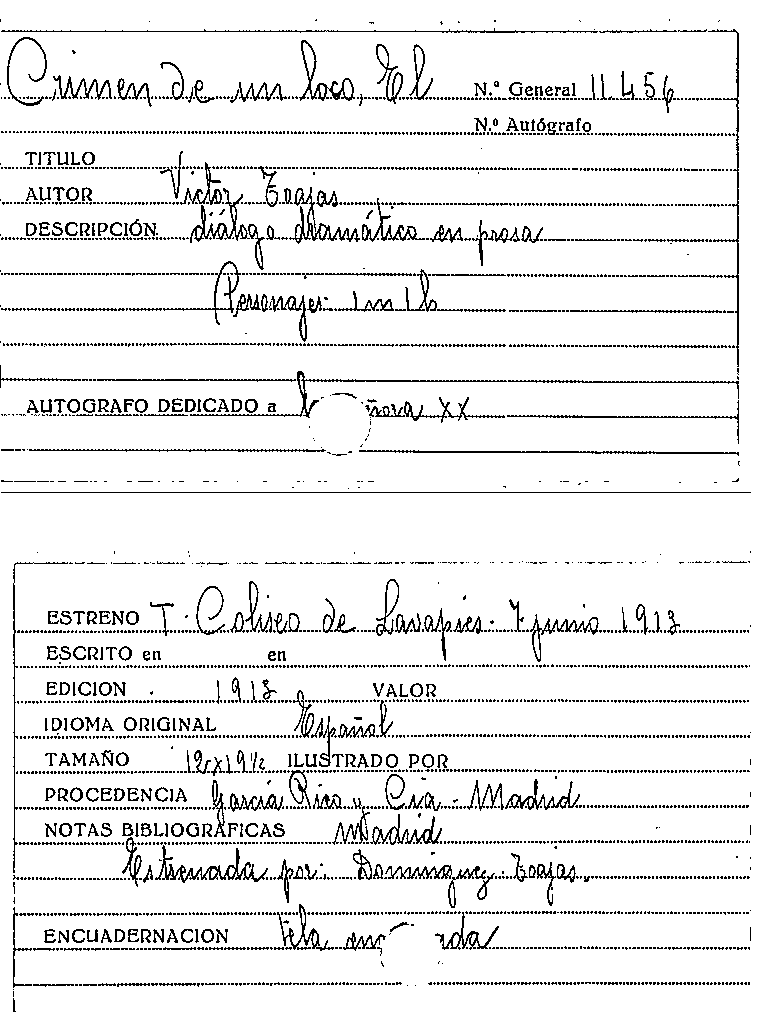 Crimen de un loco, El N.º General 11.456
N.º Autógrafo
TITULO
AUTOR Victor Eoajas
DESCRIPCIÓN diálogo dramático en prosa
Personajes: 1m 1h
AUTOGRAFO DEDICADO a XX
ESTRENO T. Coliseo de Lavapies. 7 junio 1913
ESCRITO en en
EDICION . 1913 VALOR
IDIOMA ORIGINAL Español
TAMAÑO 12x19½ ILUSTRADO POR
PROCEDENCIA García Rico y Cía - Madrid
NOTAS BIBLIOGRAFICAS Madrid
Estrenada por: Dominguez. Eoajas.
ENCUADERNACION tela